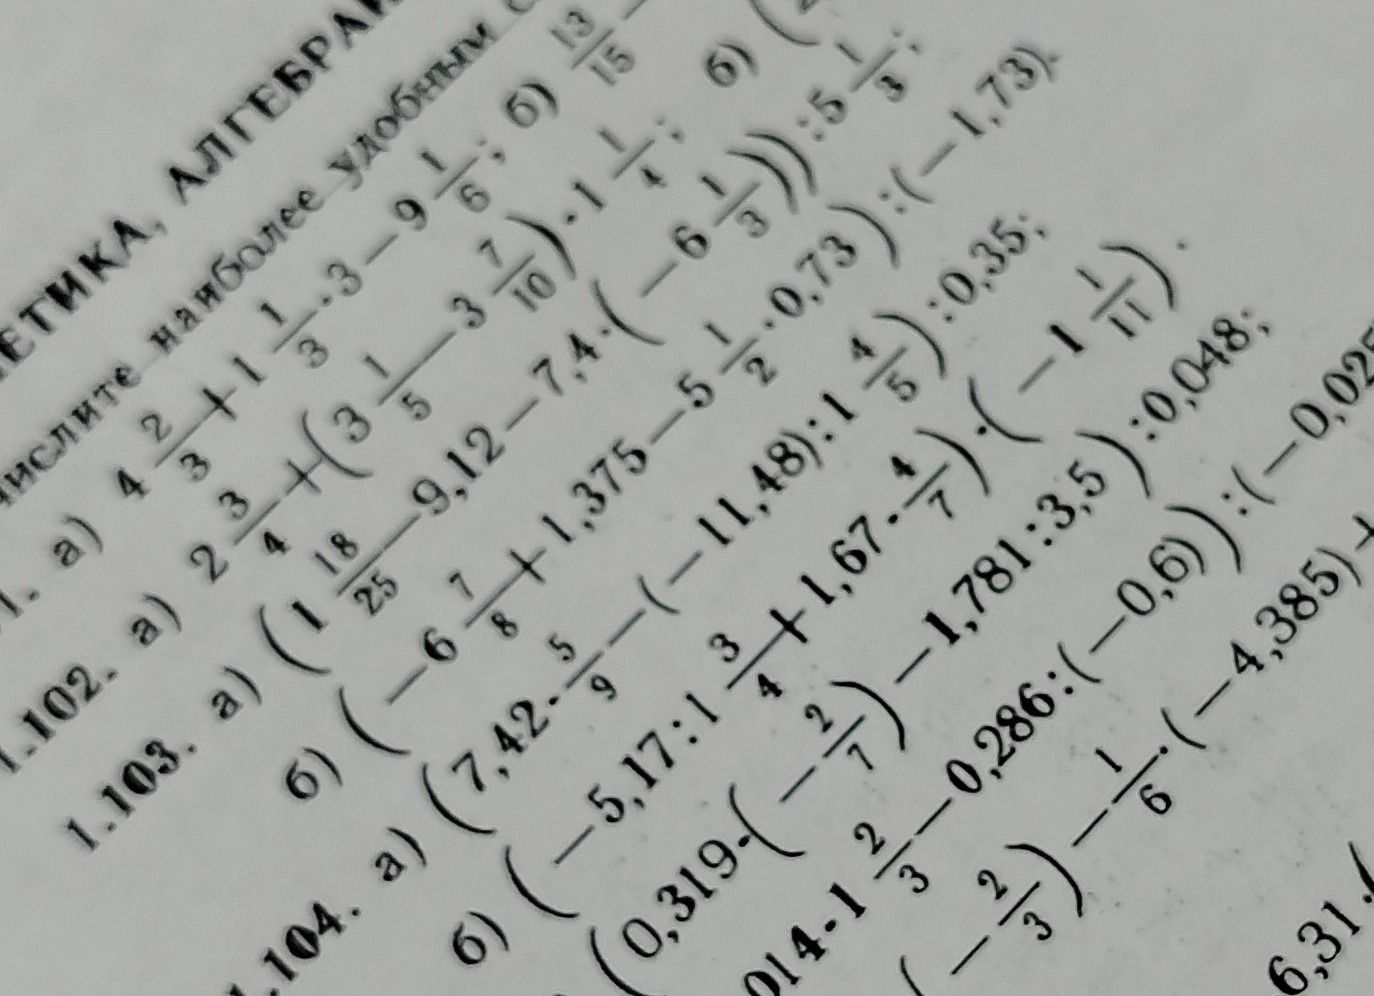 ЕТИКА, АЛГЕБРАИ
числите наиболее удобным с
1. а) 4 2/3 + 1 1/3 · 3 − 9 1/6; б) 13/15 −
1.102. а) 2 3/4 + (3 1/5 − 3 7/10) · 1 1/4; б) (
1.103. а) (1 18/25 − 9,12 − 7,4 · (−6 1/3))) : 5 1/3;
б) (−6 7/8 + 1,375 − 5 1/2 · 0,73) : (−1,73).
1.104. а) (7,42 · 5/9 − (−11,48) : 1 4/5) : 0,35;
б) (−5,17 : 1 3/4 + 1,67 · 4/7) · (−1 1/11).
(0,319 · (−2/7) − 1,781 : 3,5) : 0,048;
014 · 1 2/3 − 0,286 : (−0,6)) : (−0,025
(−2/3) − 1/6 · (−4,385) +
6,31 · (